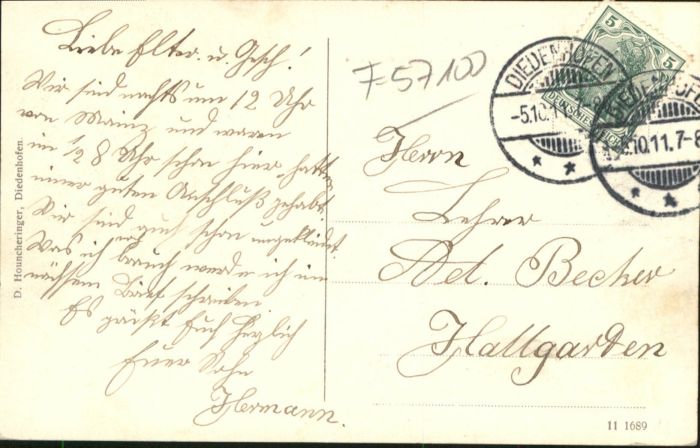 Liebe Elter. u. Gesch!
Wir sind nachts um 12 Uhr
von Mainz und waren
im 1/2 8 Uhr schon hier hatten
immer guten Anschluß gehabt.
Wir sind auch schon umgekleidet.
Was ich noch brauch werde ich im
nächsten Brief schreiben
Es grüßt Euch herzlich
Euer Sohn
Hermann.
D. Houncheringer, Diedenhofen.
F-57100
DIEDENHOFEN
-5.10.
5
DEUTSCHES REICH
DIEDENHOFEN
10.11.7-8
Herrn
Lehrer
Ad. Becher
Hallgarden
11 1689